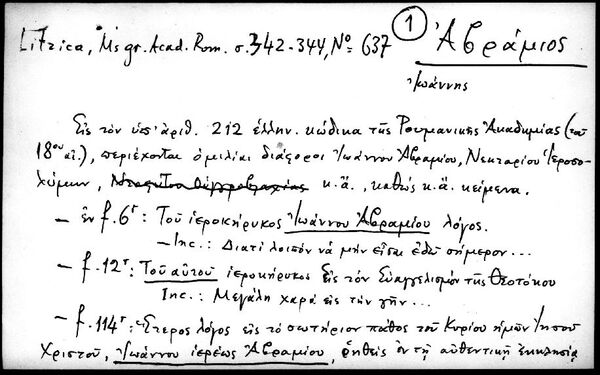 Litzica, Ms gr. Acad. Rom. σ. 342-344, Nº 637 ① Ἀβράμιος
Ἰωάννης
Εἰς τὸν ὑπ' ἀριθ. 212 ἑλλην. κώδικα τῆς Ρουμανικῆς Ἀκαδημίας (τοῦ
18ου αἰ.), περιέχονται ὁμιλίαι διάφοροι Ἰωάννου Ἀβραμίου, Νεκταρίου Ἱεροσο-
λύμων, κ.ἄ., καθὼς κ.ἄ. κείμενα.
— ἐν f. 6r: Τοῦ ἱεροκήρυκος Ἰωάννου Ἀβραμίου λόγος.
— Inc.: Διατί λοιπὸν νὰ μὴν εἶσαι ἐδῶ σήμερον...
— f. 12r: Τοῦ αὐτοῦ ἱεροκήρυκος Εἰς τὸν Εὐαγγελισμὸν τῆς Θεοτόκου
Inc.: Μεγάλη χαρὰ εἰς τὴν γῆν...
— f. 114r: Ἕτερος λόγος εἰς τὸ σωτήριον πάθος τοῦ Κυρίου ἡμῶν Ἰησοῦ
Χριστοῦ, Ἰωάννου ἱερέως Ἀβραμίου, ῥηθεὶς ἐν τῇ αὐθεντικῇ ἐκκλησίᾳ